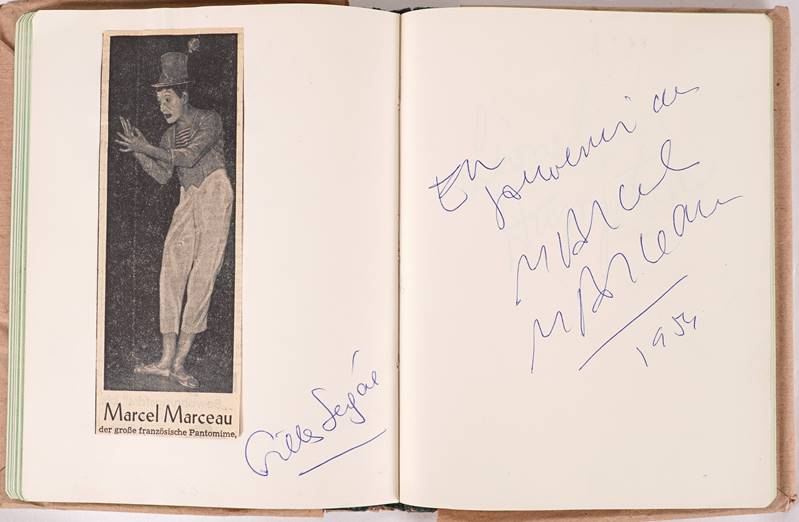 Marcel Marceau
der große französische Pantomime,
Gilles Segal
En souvenir de
Marcel
Marceau
1954